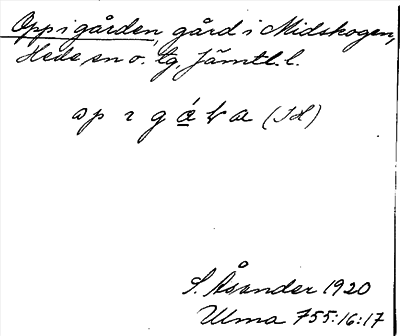 Opp i gården, gård i Midskogen,
Hede, sn o. tg, Jämtl. l.
(IH)
S. Åsander 1920
Ulma 755:16:17